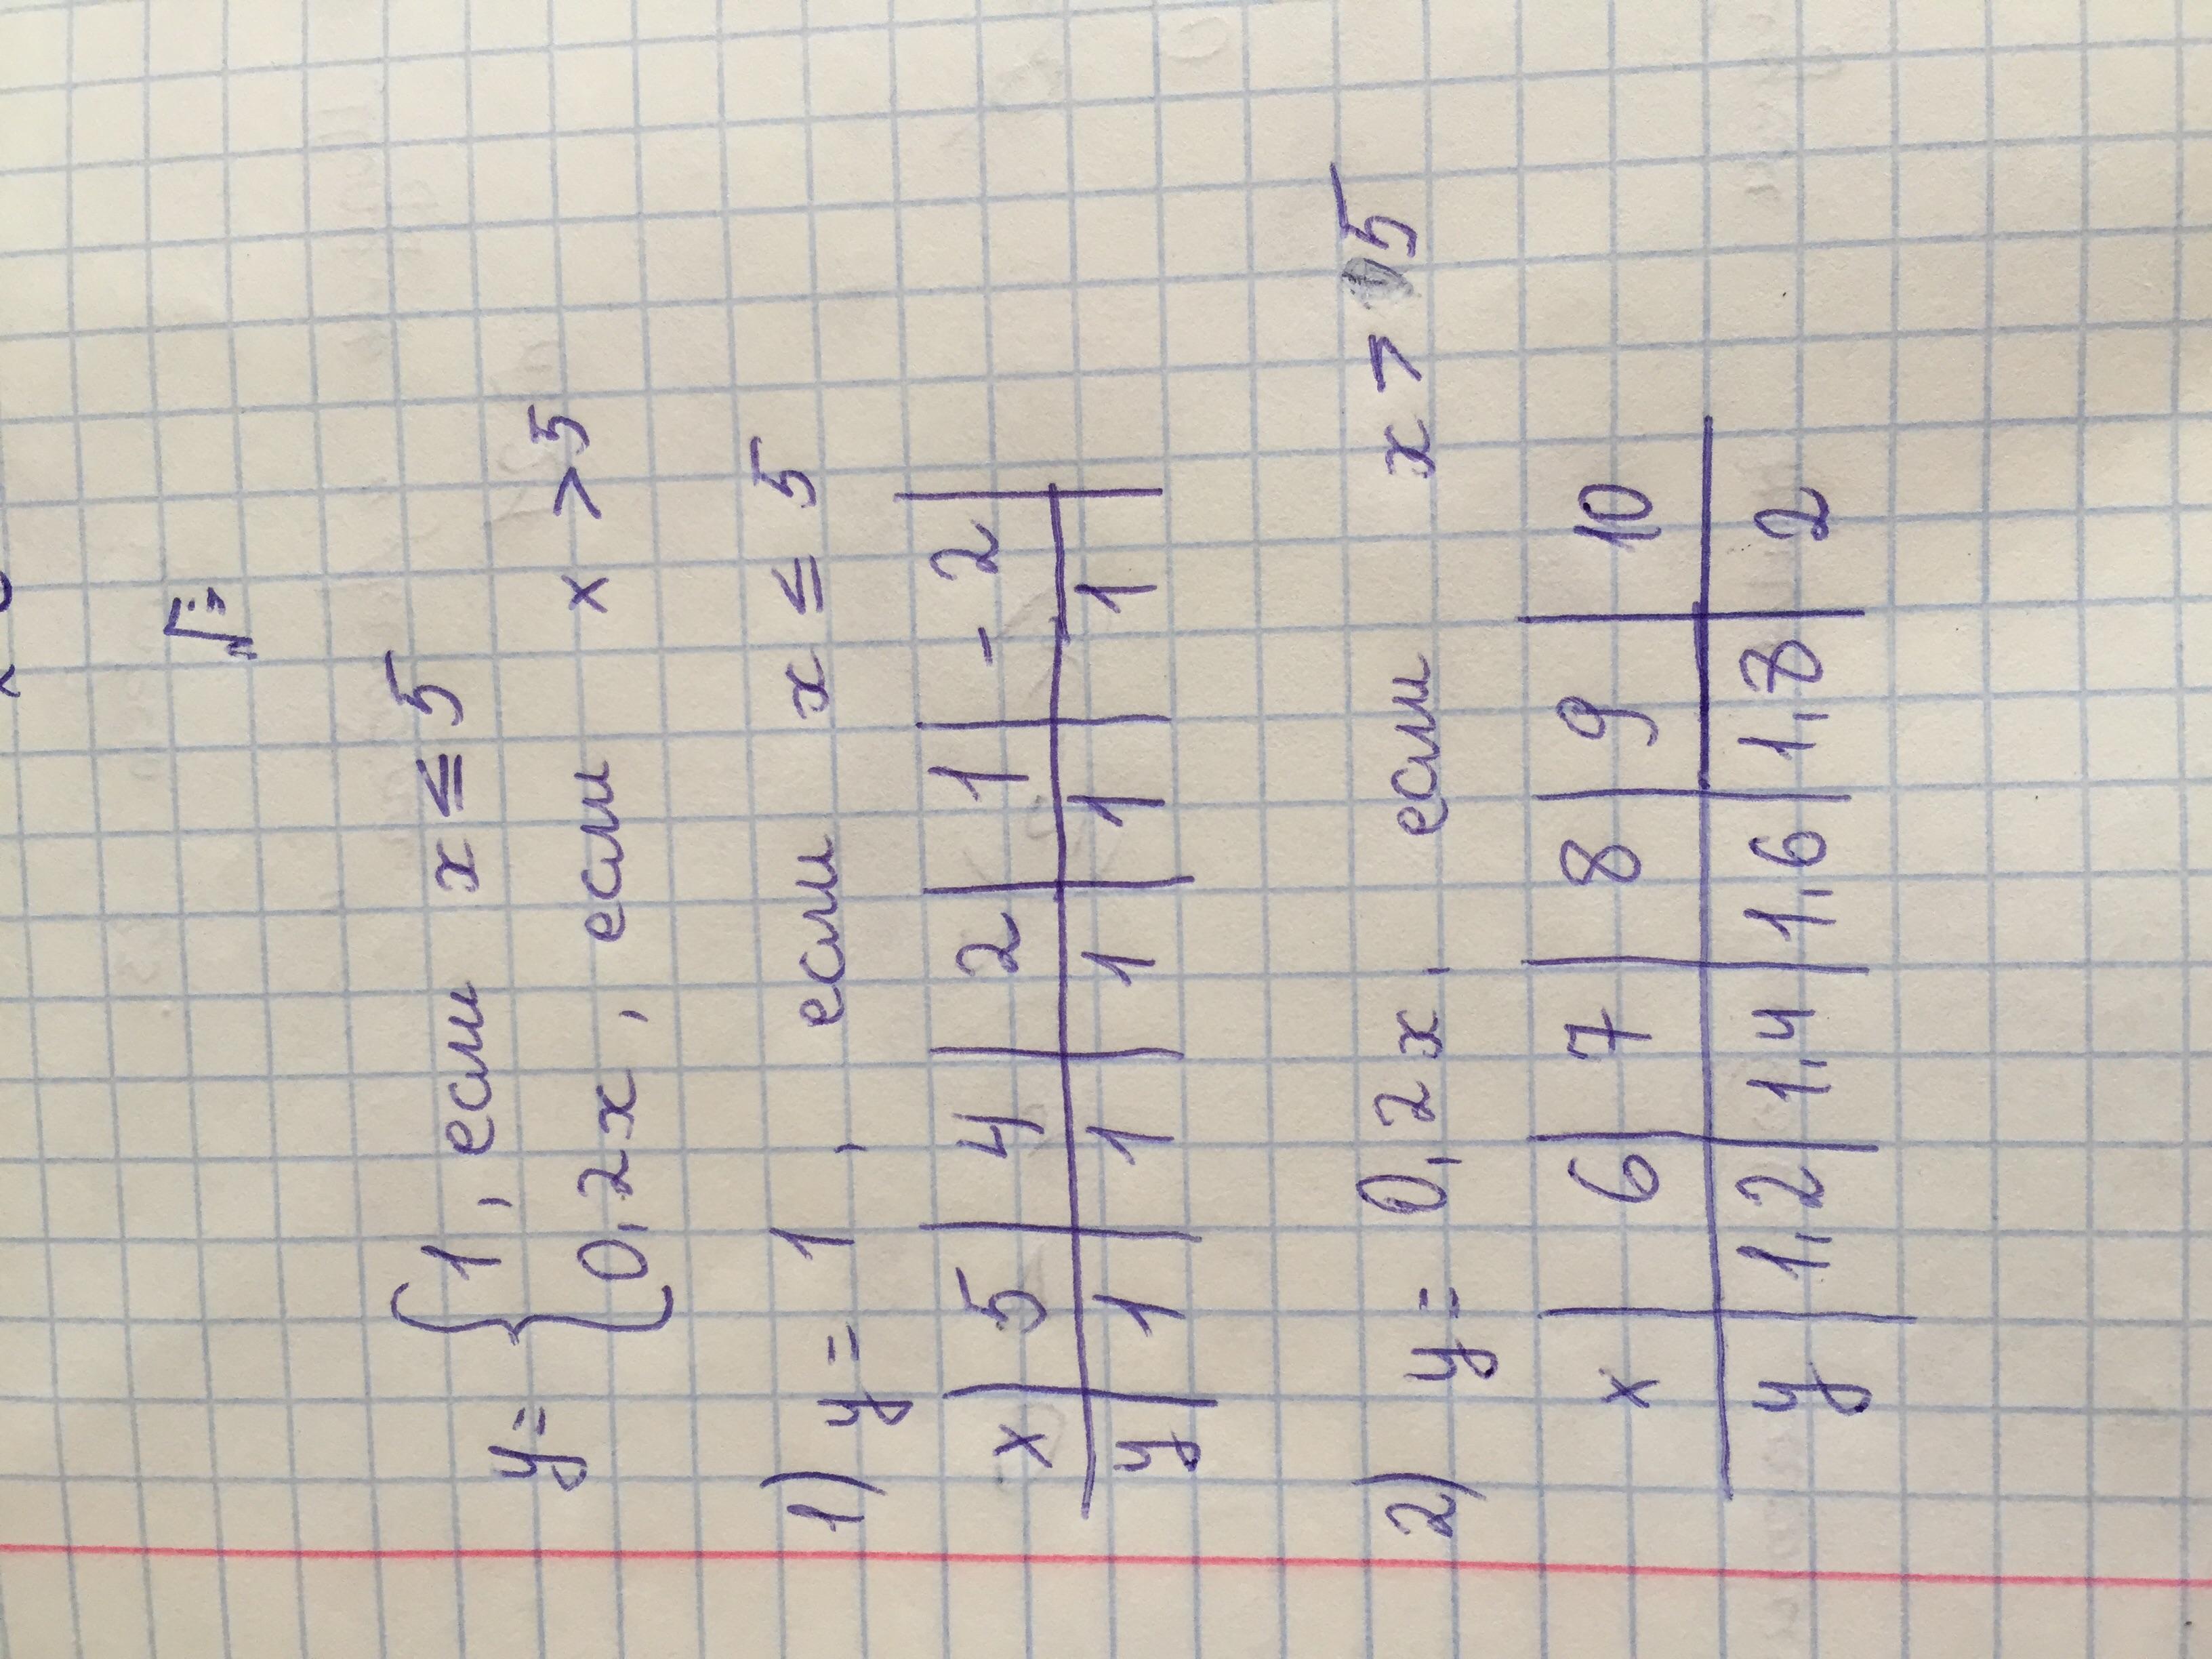 y= { 1, если x ≤ 5
0,2x, если x > 5
1) y = 1, если x ≤ 5
x | 5 | 4 | 2 | 1 | -2
y | 1 | 1 | 1 | 1 | 1
2) y = 0,2x, если x > 5
x | 6 | 7 | 8 | 9 | 10
y | 1,2 | 1,4 | 1,6 | 1,8 | 2